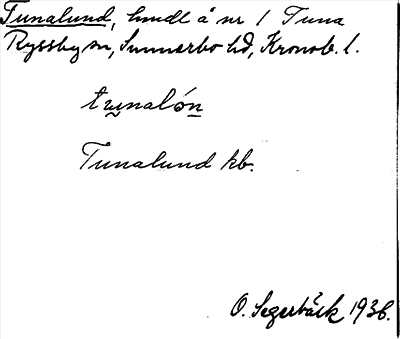 Tunalund, hmdl å nr 1 Tuna
Ryssby sn, Sunnerbo hd, Kronob. l.
tu̲nalón̲
Tunalund kb.
O. Segerbäck 1936.